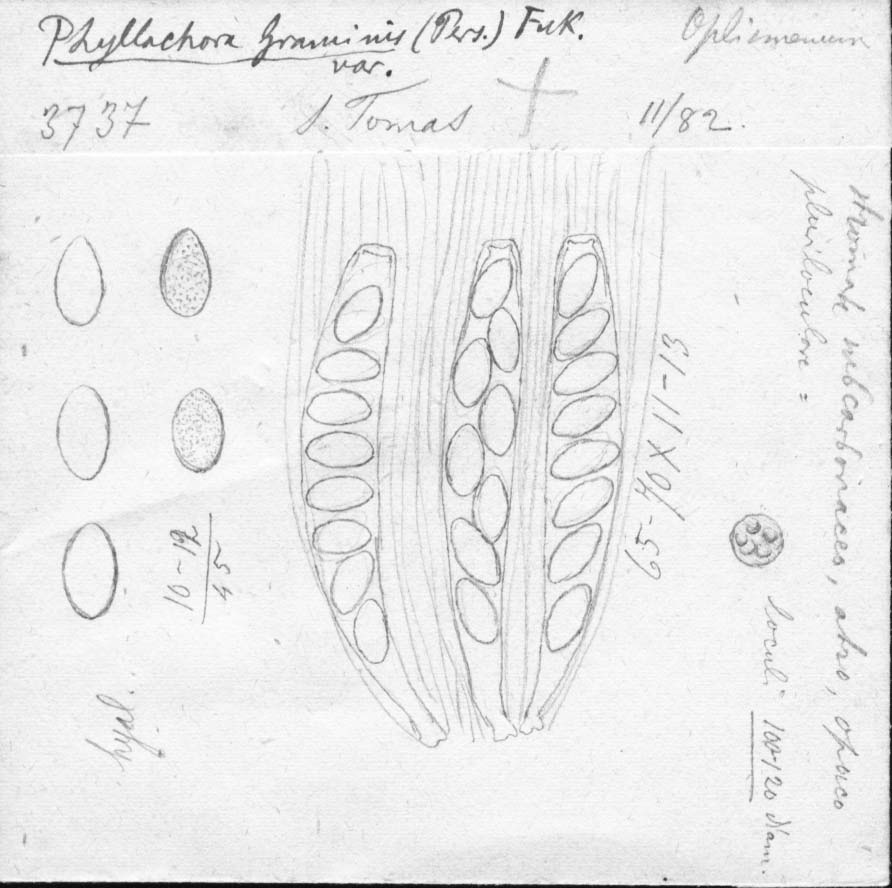 Phyllachora Graminis (Pers.) Fuk.
var.
Oplismenium
3737
S. Tomas
11/82.
stromate subcarbonaceo, atro, opaco
pluriloculare =
loculi 100-120 diam.
65-70 X 11-13